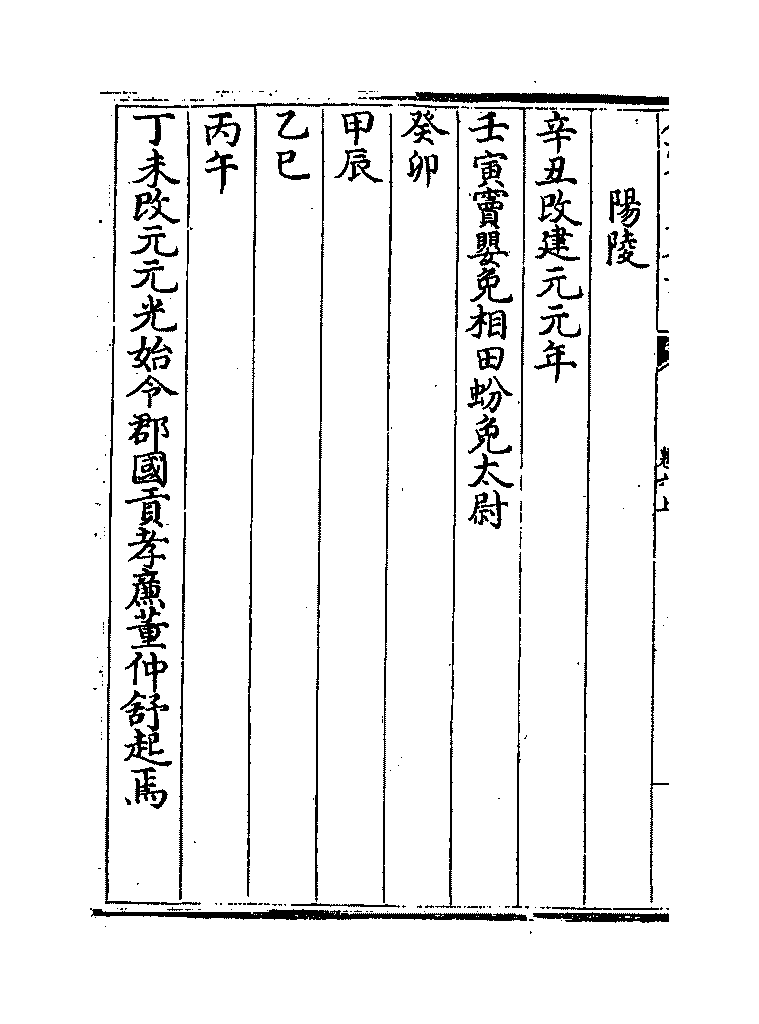 陽陵
辛丑改建元元年
壬寅竇嬰免相田蚡免太尉
癸卯
甲辰
乙巳
丙午
丁未改元元光始令郡國貢孝廉董仲舒起焉
卷六上